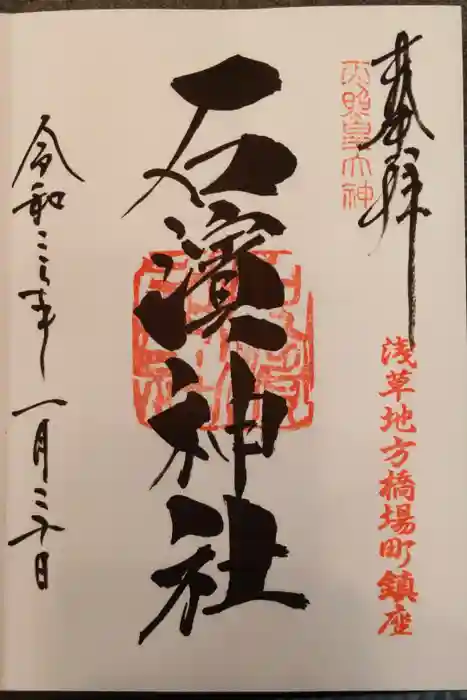 奉拝
天照皇大神
浅草地方橋場町鎮座
石濱神社
令和三年一月三十日